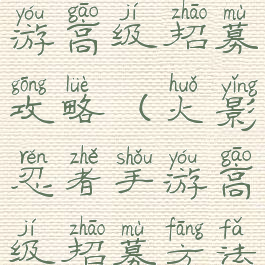 yóu gāo jí zhāo mù
游高级招募
gōng lüè huǒ yǐng
攻略（火影
rěn zhě shǒu yóu gāo
忍者手游高
jí zhāo mù fāng fǎ
级招募方法